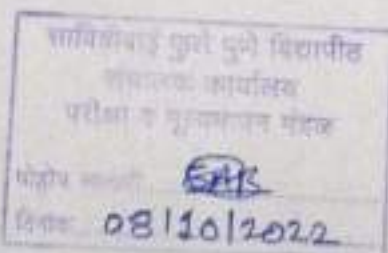 सावित्रीबाई फुले पुणे विद्यापीठ
संचालक कार्यालय
परीक्षा व मूल्यमापन मंडळ
दिनांक: 08/10/2022